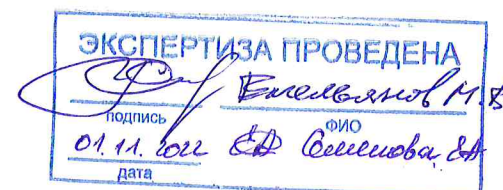 ЭКСПЕРТИЗА ПРОВЕДЕНА
Емельянов М.В
подпись ФИО
01.11.2022
дата